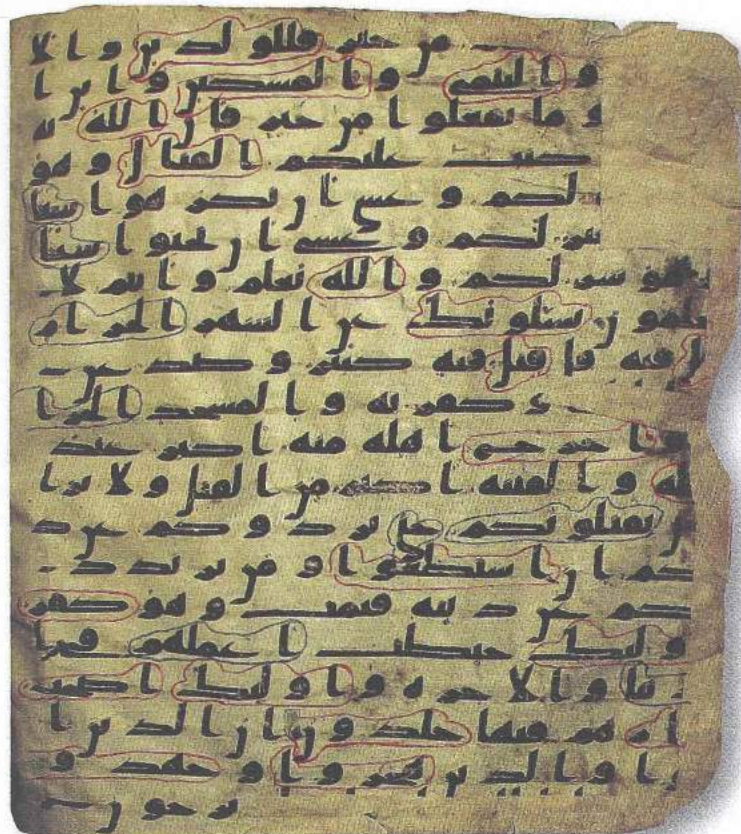 من خير فللولدين والا
واليتمى والمسكين وابن ا
وما تفعلوا من خير فان الله به
كتب عليكم القتال وهو
لكم وعسى ان تكرهوا شيئا
خير لكم وعسى ان تحبوا شيئا
وهو شر لكم والله يعلم وانتم لا
تعلمون يسئلونك عن الشهر الحرام
فيه قل قتل فيه كبير وصد عن
وكفر به والمسجد الحرا
واخرج اهله منه اكبر عند
لله والفتنة اكبر من القتل ولا يزا
ن يقتلونكم حتى يرد وكم عن د
كم ان استطعوا ومن يرتدد
كم عن دينه فيمت وهو كفر
ولئك حبطت اعملهم في ا
نيا والاخرة واولئك اصحب
ار هم فيها خلدون ان الذين ا
نوا والذين هجروا وجهدو
يرجون